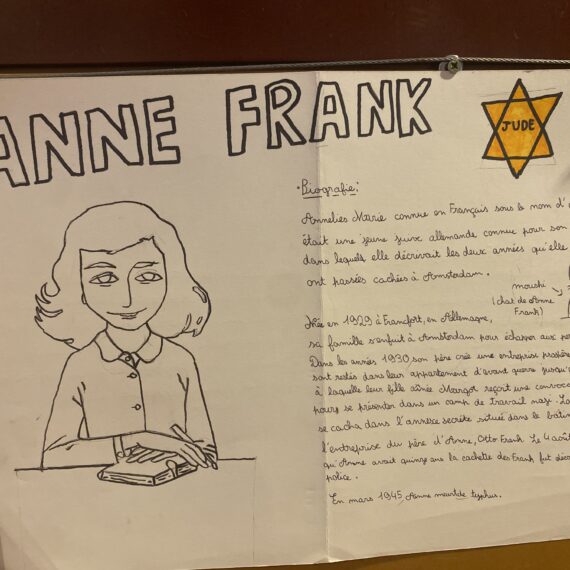 ANNE FRANK
JUDE
• Biografie:
Annelies Marie connue en Français sous le nom d'
était une jeune juive allemande connue pour son
dans lequels elle décrivait les deux années qu'elle
ont passées cachées à Amsterdam.
moushi
(chat de Anne
Frank)
Née en 1929 à Francfort, en Allemagne,
sa famille s'enfuit à Amsterdam pour échapper aux per
Dans les années 1930 son père crée une entreprise
sont restés dans leur appartement d'avant guerre jusqu'
à laquelle leur fille aînée Margot reçoit une convoca
pour se présenter dans un camp de travail nazi.
se cacha dans l'annexe secrète situé dans le bâtim
l'entreprise du père d'Anne, Otto Frank. Le 4 août
qu'Anne avait quinze ans la cachette des Frank fut déco
police.
En mars 1945, Anne meurt de typhus.